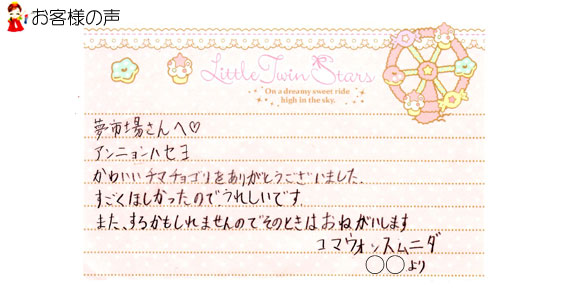 お客様の声
Little Twin Stars
On a dreamy sweet ride
high in the sky.
夢市場さんへ♡
アンニョンハセヨ
かわいいチマチョゴリをありがとうございました。
すごくほしかったので、うれしいです。
また、するかもしれませんのでそのときはおねがいします
コマウォンスムニダ
○○より